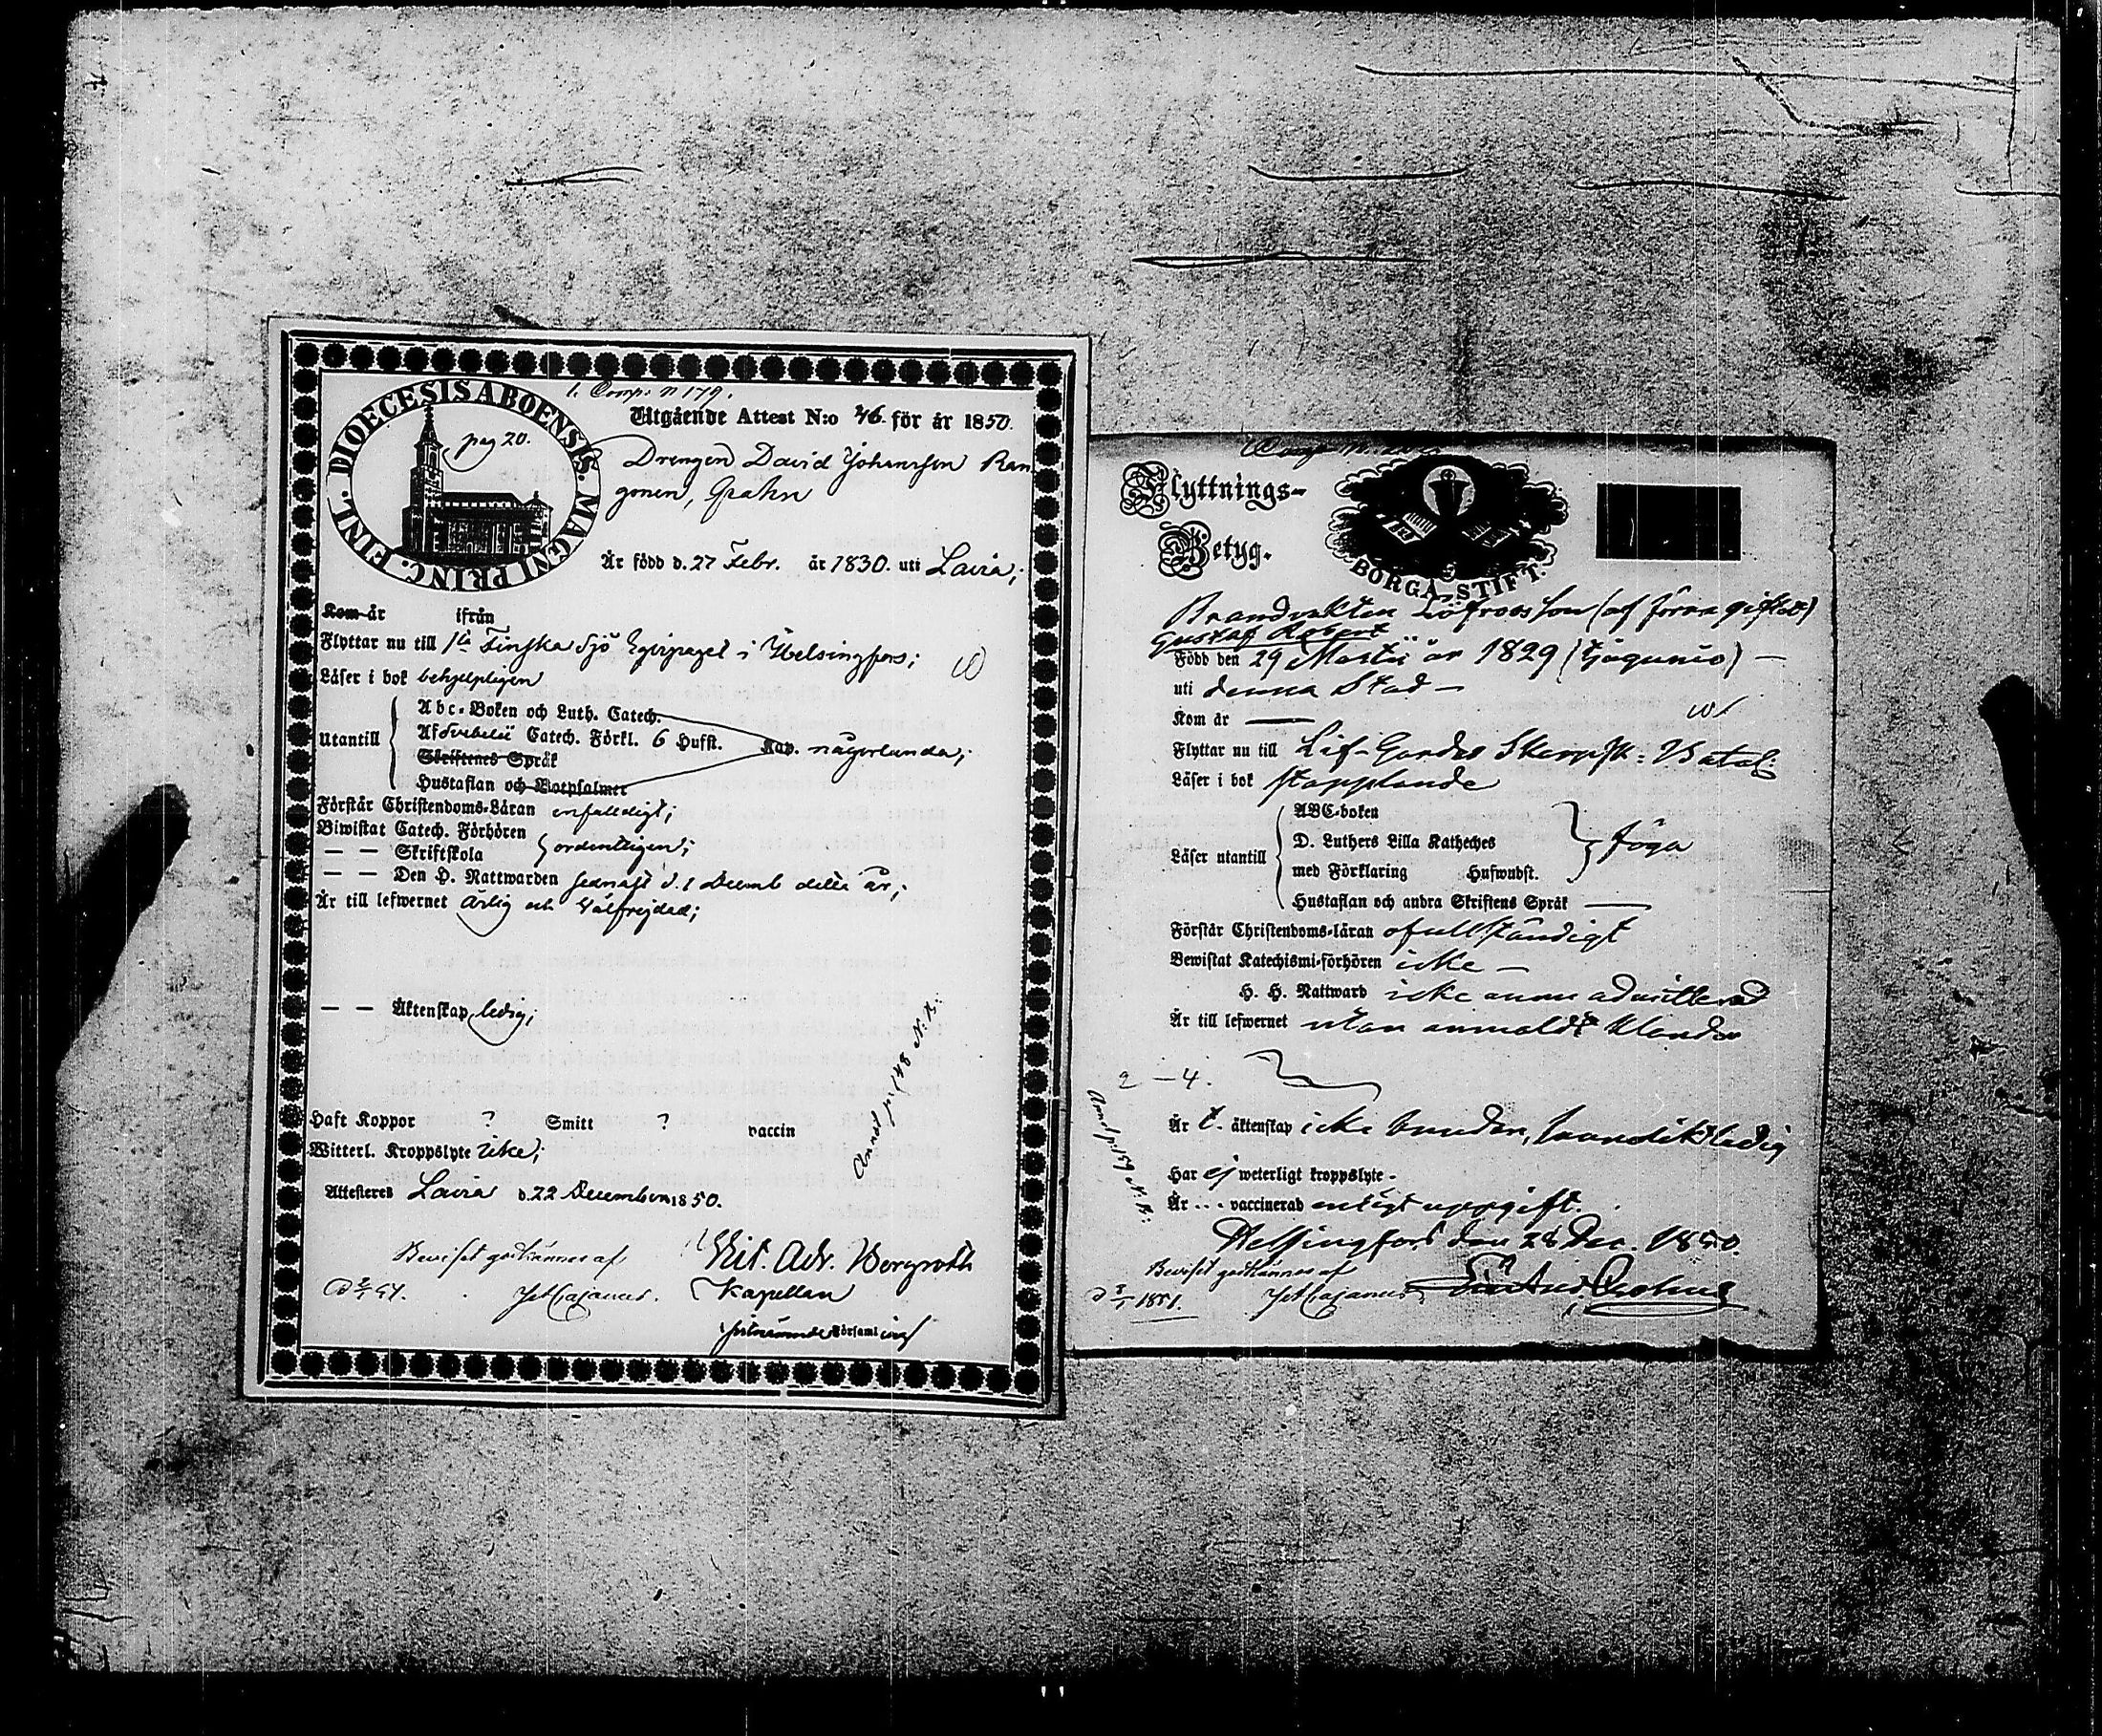 1. Comp: N 179.
DIOECESIS ABOENSIS. MAGNI PRINC. FINL.
pag 20.
Utgående Attest N:o 46. för år 1850.
Drengen David Johansson Ran
gonen, Grahn
Är född d. 27 Febr. år 1830. uti Lavia;
Kom år ifrån
Flyttar nu till 1ta Finska Sjö Eqvipaget i Helsingfors;
Läser i bok behjelpligen
Utantill
Abc-Boken och Luth. Catech.
Af Svebelii Catech. Förkl. 6 Hufst. Kap. någorlunda;
Skriftenes Språk
Hustaflan och Botpsalmer
Förstår Christendoms-Läran enfaldigt;
Biwistat Catech. Förhören
— — Skriftskola ordentligen;
— — Den H. Nattwarden sednast d. 1 Decemb detta år;
Är till lefwernet ärlig och Välfrejdad;
— — Äktenskap ledig;
Annot. pag 148 N. B:
Haft Koppor ? Smitt ? vaccin
Witterl. Kroppslyte icke;
Attesteres Lavia d. 22 December 1850.
Beviset godkännes af
Vict. Adr. Bergroth
Kapellan
Cajanus.
Församl
Flyttnings-
Betyg.
BORGÅ STIFT.
Brandvakten Löfroos Son (af förra giftet)
Gustaf Robert
Född den 29 Martii år 1829 (tjugunio) —
uti denna Stad —
Kom år —
Flyttar nu till Lif-Gardes Skarpsk: Batal:
Läser i bok stapplande
Läser utantill
ABC-boken
D. Luthers Lilla Katheches
med Förklaring Hufwudst.
föga
Hustaflan och andra Skriftens Språk —
Förstår Christendoms-läran ofullständigt
Bewistat Katechismi-förhören icke —
H. H. Nattward icke ännu admitterad
Är till lefwernet utan anmäldt klander
2 — 4.
Annot p: 159 N. B:
Är t. äktenskap icke bunden, ledig
Har ej weterligt kroppslyte.
Är ... vaccinerad enligt uppgift.
Helsingfors den 28 Dec. 1850.
Beviset godkännes af
1851. Cajanus